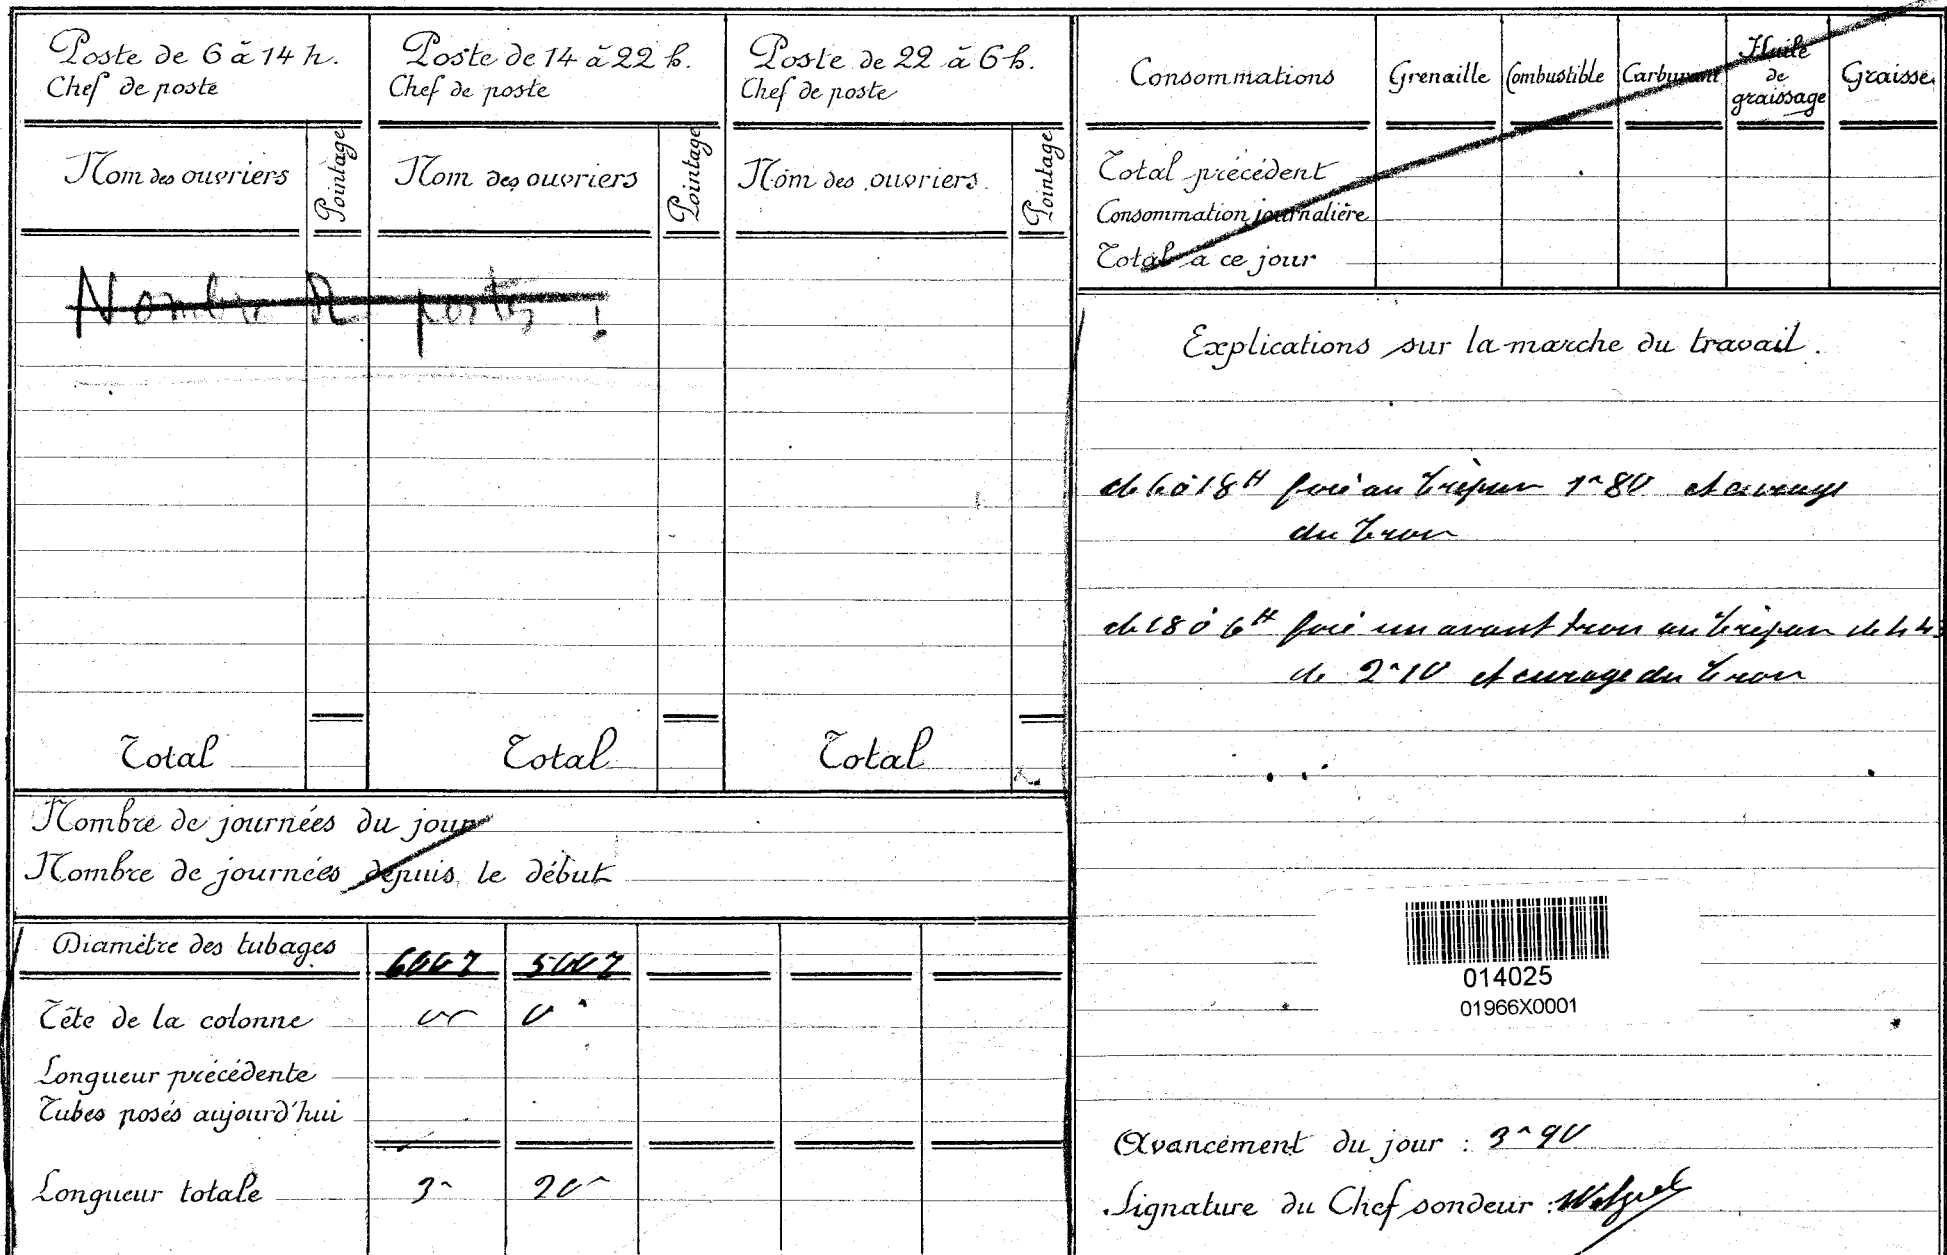 Poste de 6 à 14 h.
Chef de poste
Nom des ouvriers
Pointage
Poste de 14 à 22 h.
Chef de poste
Nom des ouvriers
Pointage
Poste de 22 à 6 h.
Chef de poste
Nom des ouvriers
Pointage
Nombre de postes :
Total
Total
Total
Nombre de journées du jour
Nombre de journées depuis le début
Diamètre des tubages
Tête de la colonne
Longueur précédente
Tubes posés aujourd'hui
Longueur totale 3m 20m
Consommations Grenaille Combustible Carburant Huile de graissage Graisse
Total précédent
Consommation journalière
Total à ce jour
Explications sur la marche du travail.
de 6 à 18H foré au trépan 1m80 et curage
du trou
de 18 à 6H foré un avant trou au trépan de
de 2m10 et curage du trou
014025
01966X0001
Avancement du jour : 3m90
Signature du Chef sondeur :